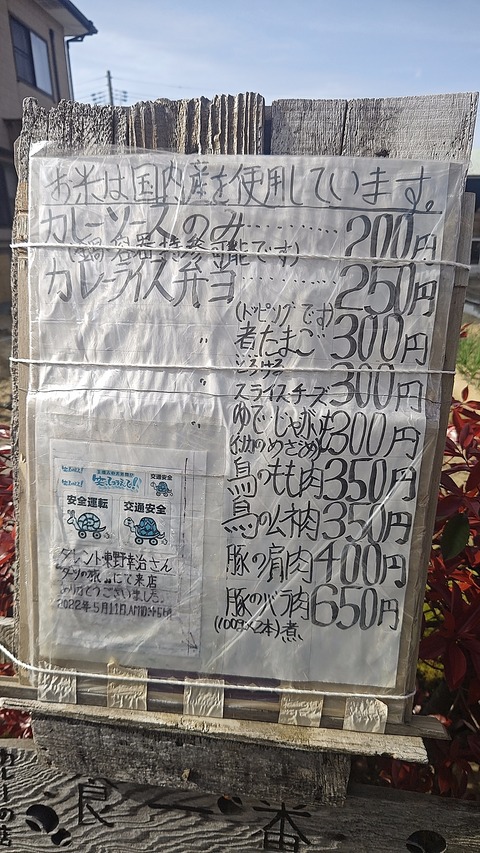 お米は国内産を使用しています。
カレーソースのみ………200円
(鍋・容器持参可能です)
カレーライス弁当………250円
(トッピングです)
〃 煮たまご 300円
〃 スライスチーズ 300円
ゆでじゃがいも 300円
鳥のもも肉 350円
鳥のムネ肉 350円
豚の肩肉 400円
豚のバラ肉 650円
(100g×2本)煮
安全運転
交通安全
交通安全
タレント東野幸治さん
にて来店
ありがとうございました。
2022年5月11日
一番